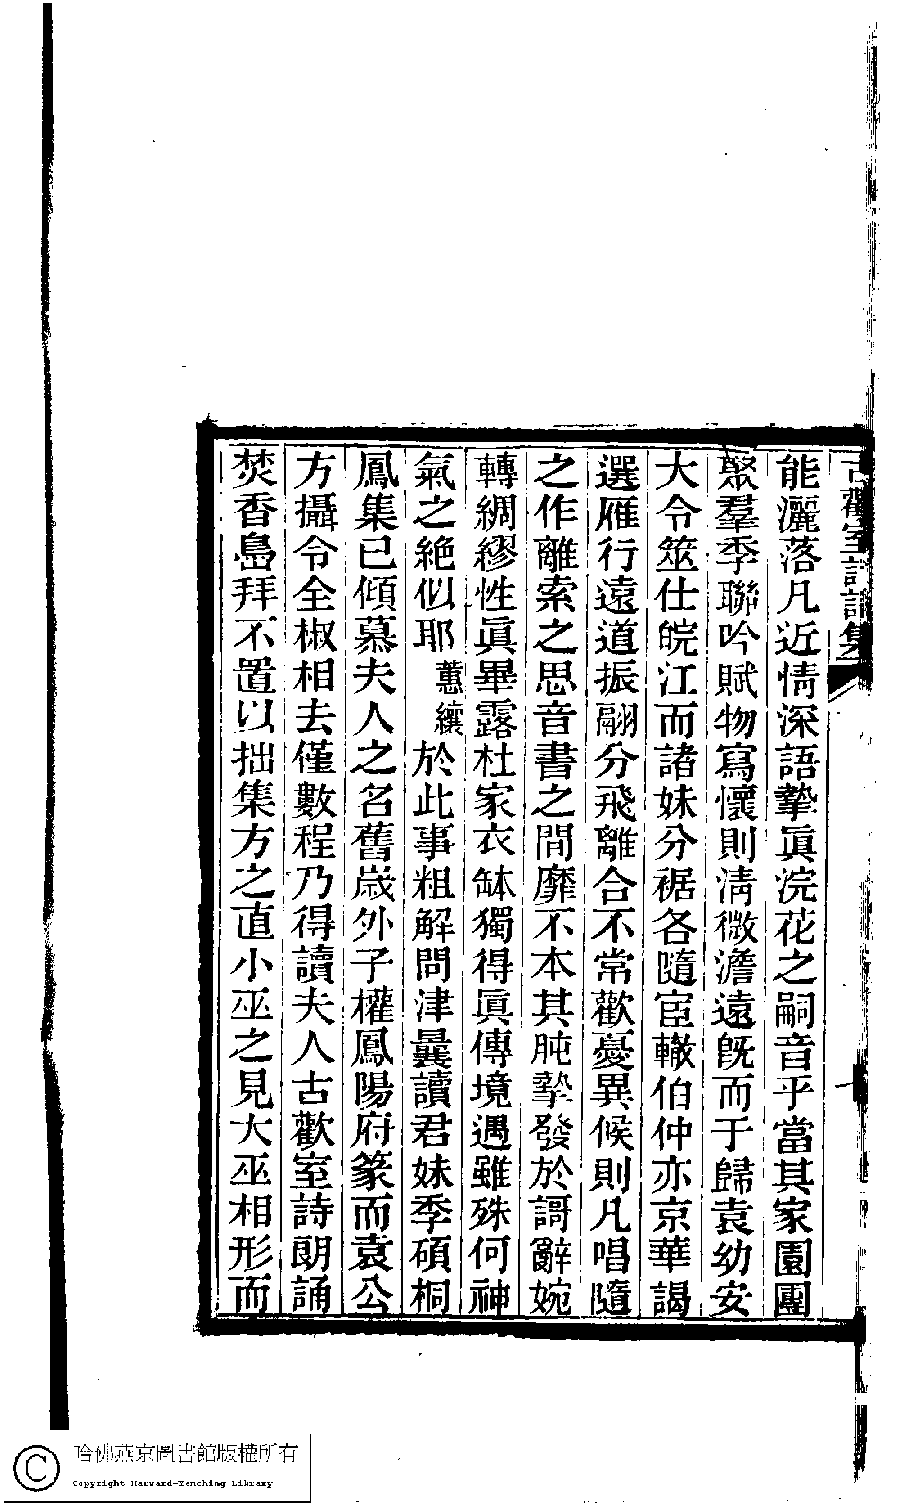 古歡室詩詞集
能灑落凡近情深語摯眞浣花之嗣音乎當其家園團
聚羣季聯吟賦物寫懷則淸微澹遠旣而于歸袁幼安
大令筮仕皖江而諸妹分裾各隨宦轍伯仲亦京華謁
選雁行遠道振翮分飛離合不常歡憂異候則凡唱隨
之作離索之思音書之間靡不本其肫摯發於謌辭婉
轉綢繆性眞畢露杜家衣缽獨得眞傳境遇雖殊何神
氣之絶似耶蕙纕於此事粗解問津曩讀君妹季碩桐
鳳集已傾慕夫人之名舊歲外子權鳳陽府篆而袁公
方攝令全椒相去僅數程乃得讀夫人古歡室詩朗誦
焚香島拜不置以拙集方之直小巫之見大巫相形而
哈佛燕京圖書館版權所有
Copyright Harvard-Yenching Library